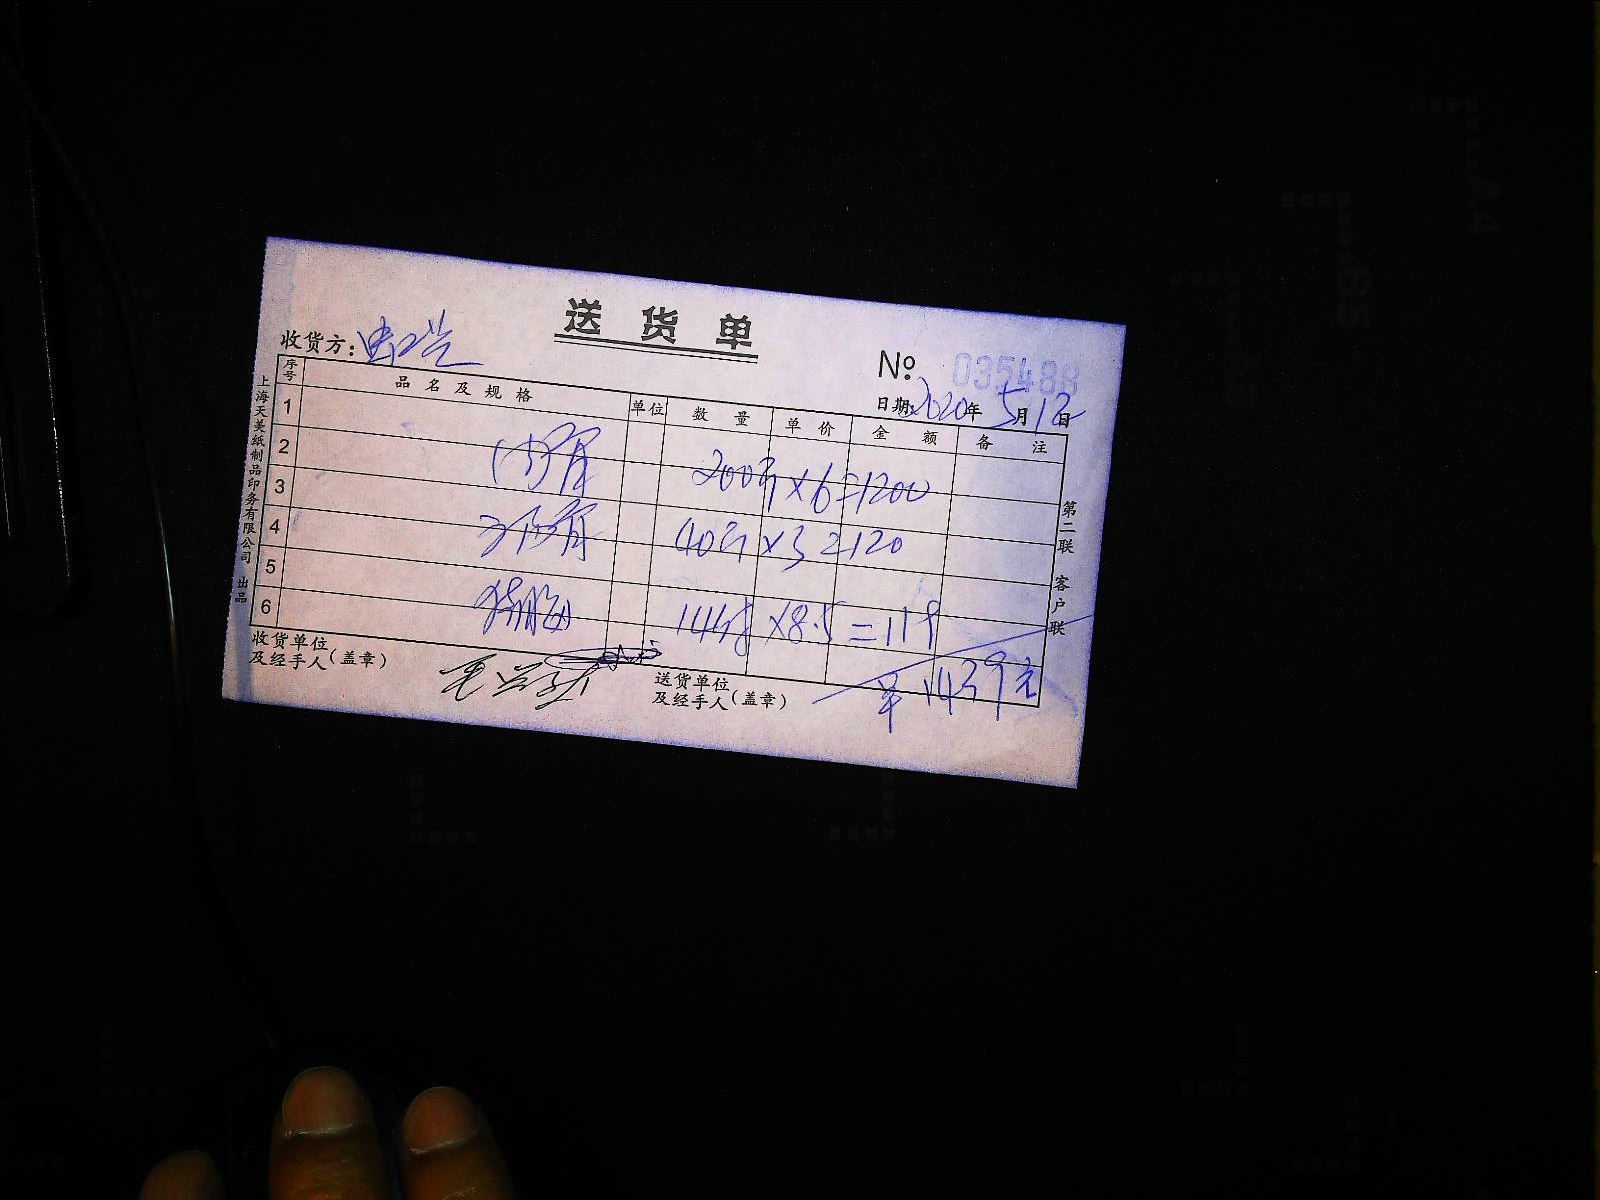 送货单
收货方：
№ 035488
日期：2020年5月12日
序号 品名及规格 单位 数量 单价 金额 备注
1
2 200 ×6=1200
3
4 40 ×3=120
5
6 14 ×8.5=119
1439元
收货单位
及经手人（盖章）
送货单位
及经手人（盖章）
上海天美纸制品印务有限公司 出品
第二联 客户联